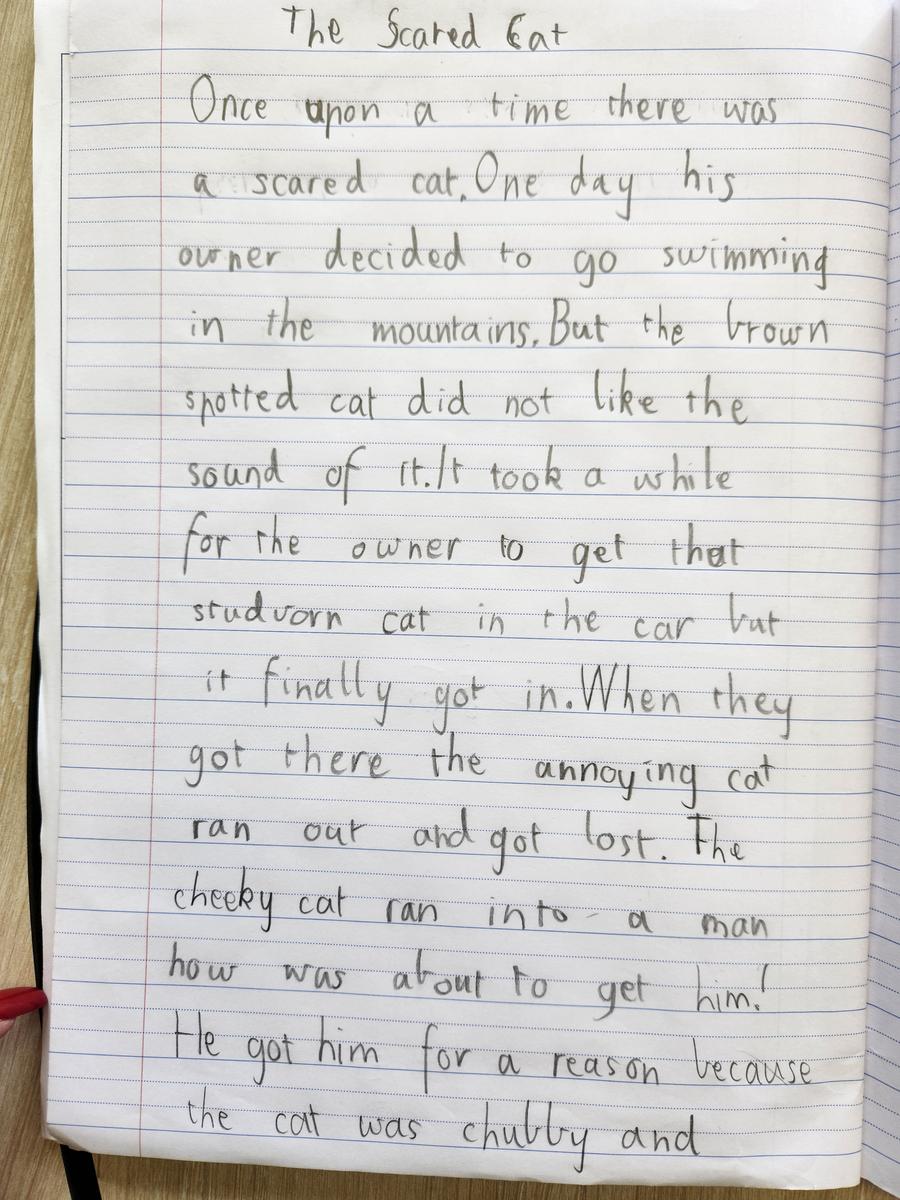 The Scared Cat
Once upon a time there was
a scared cat. One day his
owner decided to go swimming
in the mountains. But the brown
spotted cat did not like the
sound of it. It took a while
for the owner to get that
studvorn cat in the car but
it finally got in. When they
got there the annoying cat
ran out and got lost. The
cheeky cat ran into a man
how was about to get him!
He got him for a reason because
the cat was chubby and